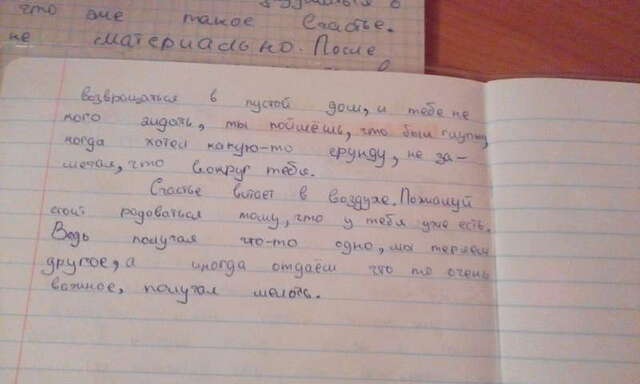 что же такое Счастье.
не материально. После
возвращаться в пустой дом, и тебе не
кого ждать, ты поймёшь, что был глупым,
когда хотел какую-то ерунду, не за-
метая, что вокруг тебя.
Счастье витает в воздухе. Пожалуй
стоит родоваться тому, что у тебя уже есть.
Ведь получая что-то одно, мы теряем
другое, а иногда отдаём что то очень
важное, получая мелочь.